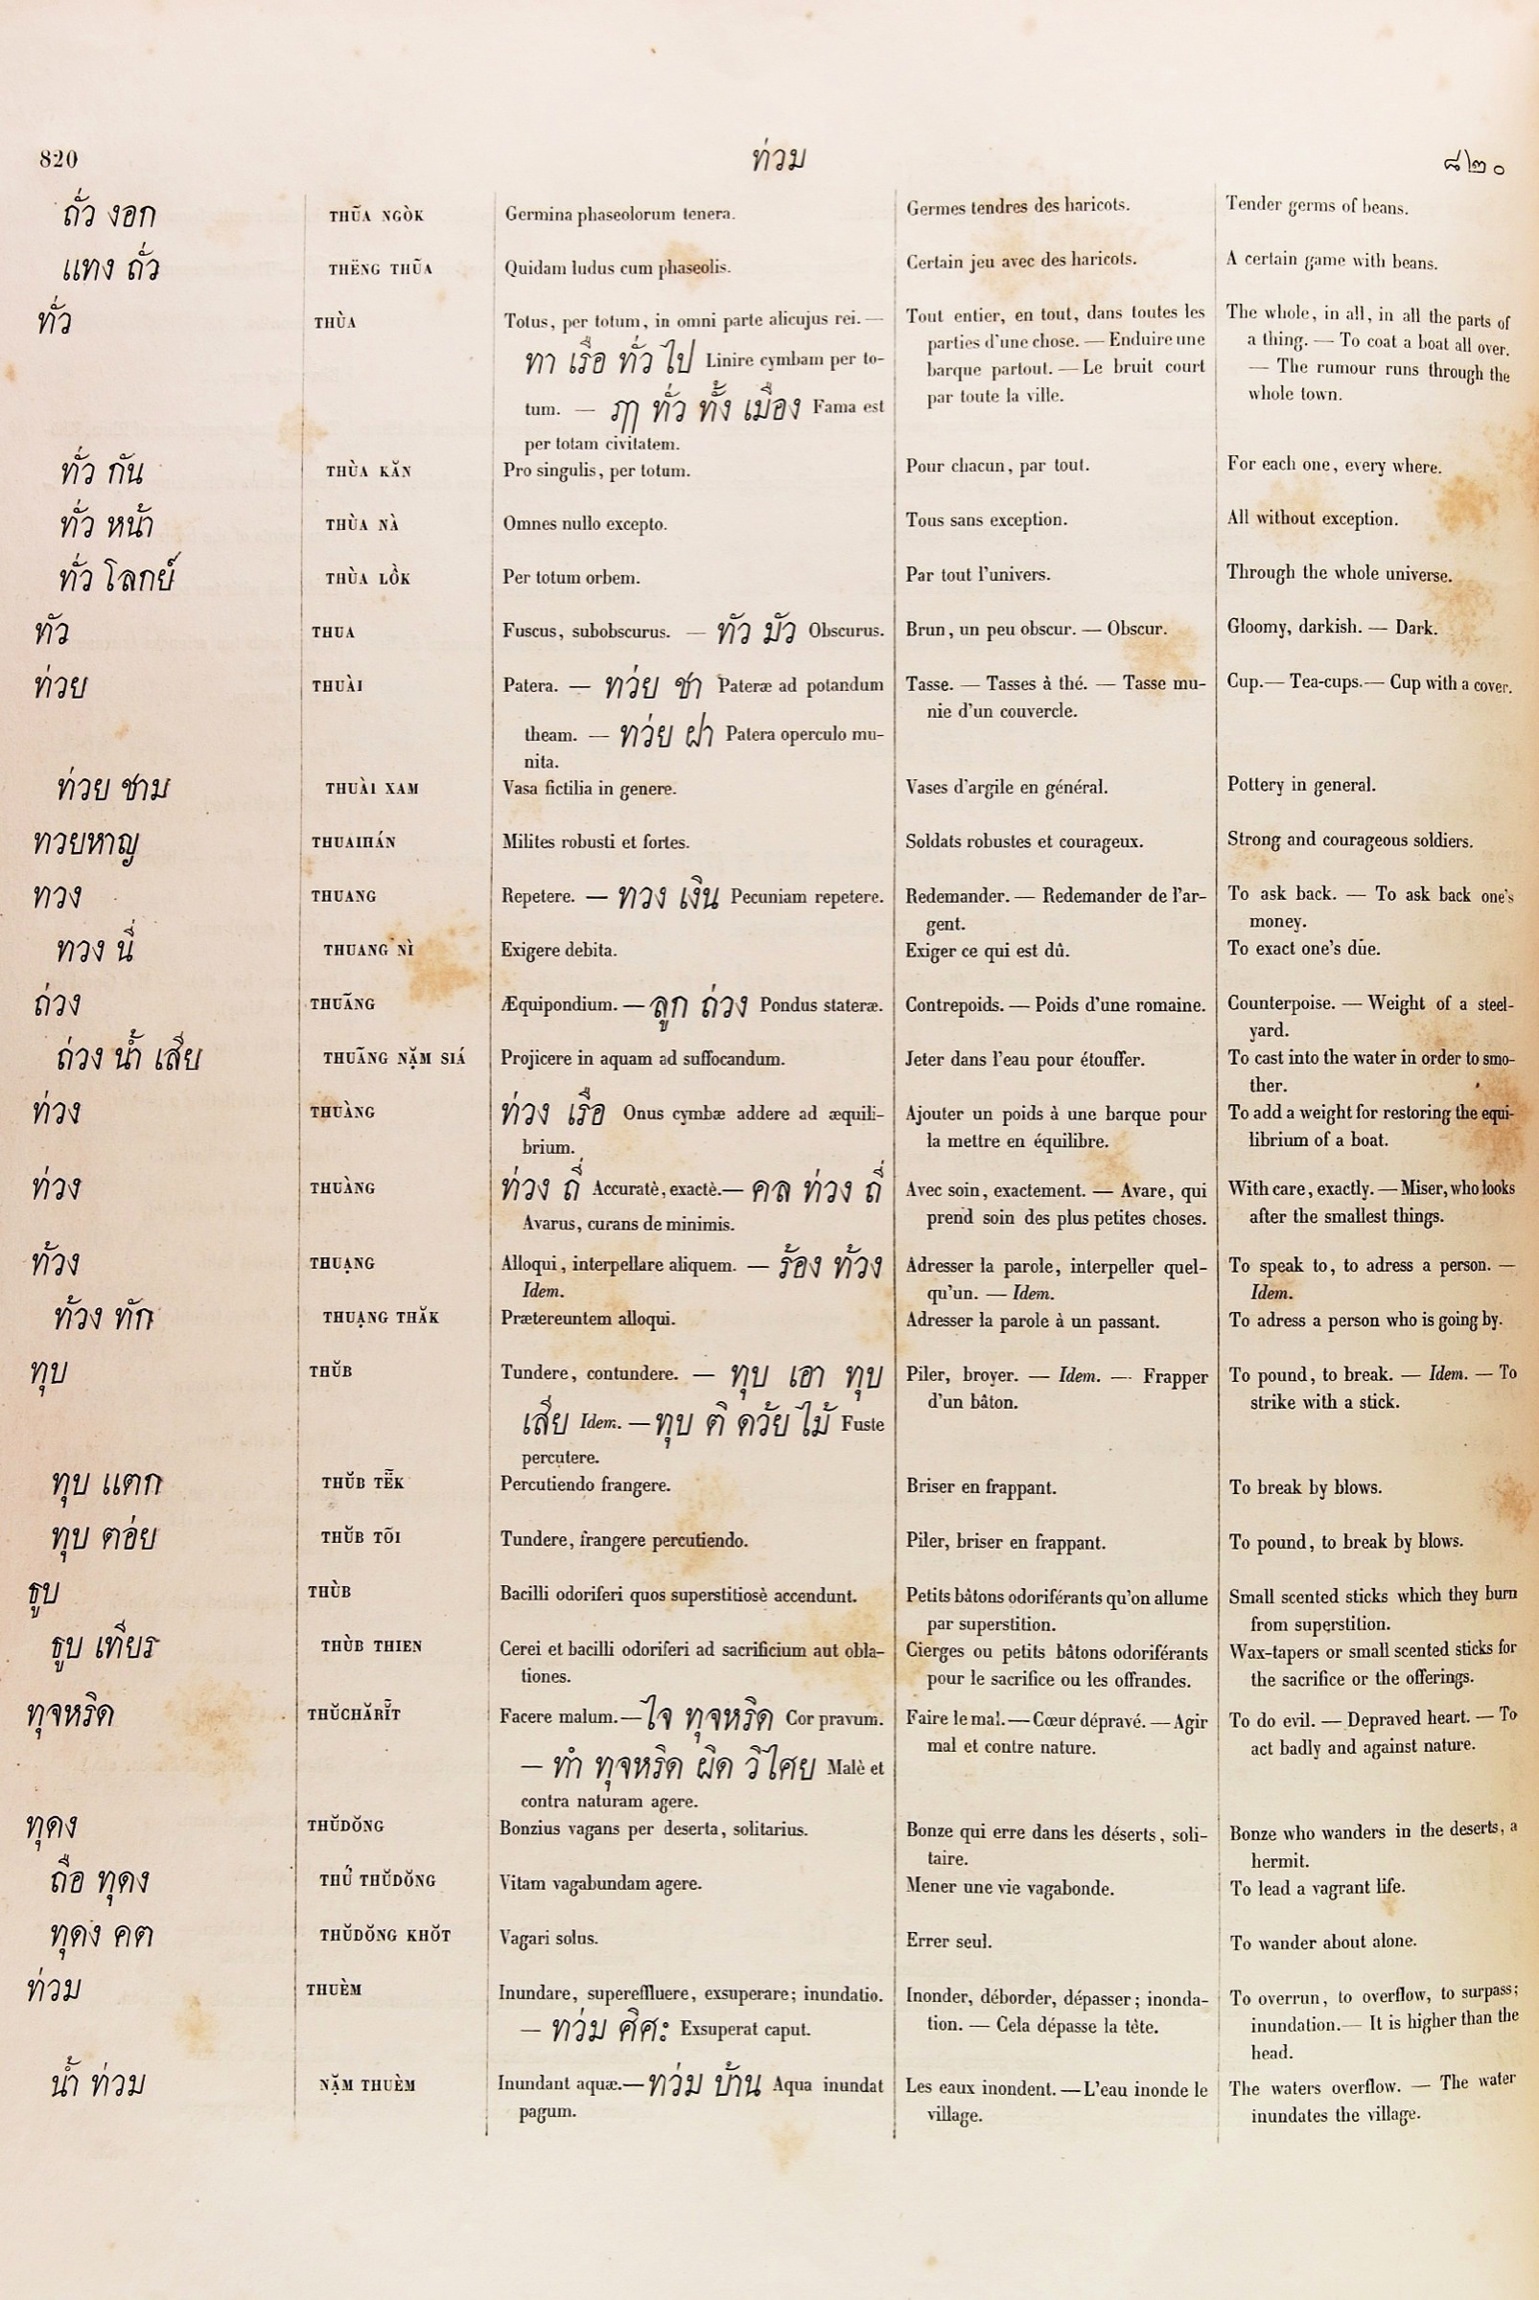 820 ท่วม ๘๒๐
ถั่ว งอก THŨA NGÒK Germina phaseolorum tenera. Germes tendres des haricots. Tender germs of beans.
แทง ถั่ว THËNG THŨA Quidam ludus cum phaseolis. Certain jeu avec des haricots. A certain game with beans.
ทั่ว THÙA Totus, per totum, in omni parte alicujus rei. — Tout entier, en tout, dans toutes les The whole, in all, in all the parts of
ทา เรือ ทั่ว ไป Linire cymbam per to- parties d'une chose. — Enduire une a thing. — To coat a boat all over.
barque partout. — Le bruit court — The rumour runs through the
tum. — ฦๅ ทั่ว ทั้ง เมือง Fama est par toute la ville. whole town.
per totam civitatem.
ทั่ว กัน THÙA KĂN Pro singulis, per totum. Pour chacun, par tout. For each one, every where.
ทั่ว หน้า THÙA NÀ Omnes nullo excepto. Tous sans exception. All without exception.
ทั่ว โลกย์ THÙA LỒK Per totum orbem. Par tout l'univers. Through the whole universe.
ทัว THUA Fuscus, subobscurus. — ทัว มัว Obscurus. Brun, un peu obscur. — Obscur. Gloomy, darkish. — Dark.
ท่วย THUÀI Patera. — ทว่ย ชา Pateræ ad potandum Tasse. — Tasses à thé. — Tasse mu- Cup. — Tea-cups. — Cup with a cover.
theam. — ทว่ย ฝา Patera operculo mu- nie d'un couvercle.
nita.
ท่วย ชาม THUÀI XAM Vasa fictilia in genere. Vases d'argile en général. Pottery in general.
ทวยหาญ THUAIHÁN Milites robusti et fortes. Soldats robustes et courageux. Strong and courageous soldiers.
ทวง THUANG Repetere. — ทวง เงิน Pecuniam repetere. Redemander. — Redemander de l'ar- To ask back. — To ask back one's
gent. money.
ทวง นี่ THUANG NÌ Exigere debita. Exiger ce qui est dû. To exact one's due.
ถ่วง THUÃNG Æquipondium. — ลูก ถ่วง Pondus stateræ. Contrepoids. — Poids d'une romaine. Counterpoise. — Weight of a steel-
yard.
ถ่วง น้ำ เสีย THUÃNG NẶM SIÁ Projicere in aquam ad suffocandum. Jeter dans l'eau pour étouffer. To cast into the water in order to smo-
ther.
ท่วง THUÀNG ท่วง เรือ Onus cymbæ addere ad æquili- Ajouter un poids à une barque pour To add a weight for restoring the equi-
brium. la mettre en équilibre. librium of a boat.
ท่วง THUÀNG ท่วง ถี่ Accuratè, exactè. — คล ท่วง ถี่ Avec soin, exactement. — Avare, qui With care, exactly. — Miser, who looks
Avarus, curans de minimis. prend soin des plus petites choses. after the smallest things.
ท้วง THUẠNG Alloqui, interpellare aliquem. — ร้อง ท้วง Adresser la parole, interpeller quel- To speak to, to adress a person. —
Idem. qu'un. — Idem. Idem.
ท้วง ทัก THUẠNG THĂK Prætereuntem alloqui. Adresser la parole à un passant. To adress a person who is going by.
ทุบ THŬB Tundere, contundere. — ทุบ เอา ทุบ Piler, broyer. — Idem. — Frapper To pound, to break. — Idem. — To
เสีย Idem. — ทุบ ตี ดว้ย ไม้ Fuste d'un bâton. strike with a stick.
percutere.
ทุบ แตก THŬB TẼK Percutiendo frangere. Briser en frappant. To break by blows.
ทุบ ตอ่ย THŬB TÕI Tundere, frangere percutiendo. Piler, briser en frappant. To pound, to break by blows.
ธูบ THÙB Bacilli odoriferi quos superstitiosè accendunt. Petits bâtons odoriférants qu'on allume Small scented sticks which they burn
par superstition. from superstition.
ธูบ เทียร THÙB THIEN Cerei et bacilli odoriferi ad sacrificium aut obla- Cierges ou petits bâtons odoriférants Wax-tapers or small scented sticks for
tiones. pour le sacrifice ou les offrandes. the sacrifice or the offerings.
ทุจหริด THŬCHĂRĨT Facere malum. — ใจ ทุจหริด Cor pravum. Faire le mal. — Cœur dépravé. — Agir To do evil. — Depraved heart. — To
— ทำ ทุจหริด ผิด วิไศย Malè et mal et contre nature. act badly and against nature.
contra naturam agere.
ทุดง THŬDŎNG Bonzius vagans per deserta, solitarius. Bonze qui erre dans les déserts, soli- Bonze who wanders in the deserts, a
taire. hermit.
ถือ ทุดง THŬ́ THŬDŎNG Vitam vagabundam agere. Mener une vie vagabonde. To lead a vagrant life.
ทุดง คต THŬDŎNG KHŎT Vagari solus. Errer seul. To wander about alone.
ท่วม THUÈM Inundare, supereffluere, exsuperare; inundatio. Inonder, déborder, dépasser; inonda- To overrun, to overflow, to surpass;
— ทว่ม ศีศะ Exsuperat caput. tion. — Cela dépasse la tête. inundation. — It is higher than the
head.
น้ำ ท่วม NẶM THUÈM Inundant aquæ. — ทว่ม บ้าน Aqua inundat Les eaux inondent. — L'eau inonde le The waters overflow. — The water
pagum. village. inundates the village.